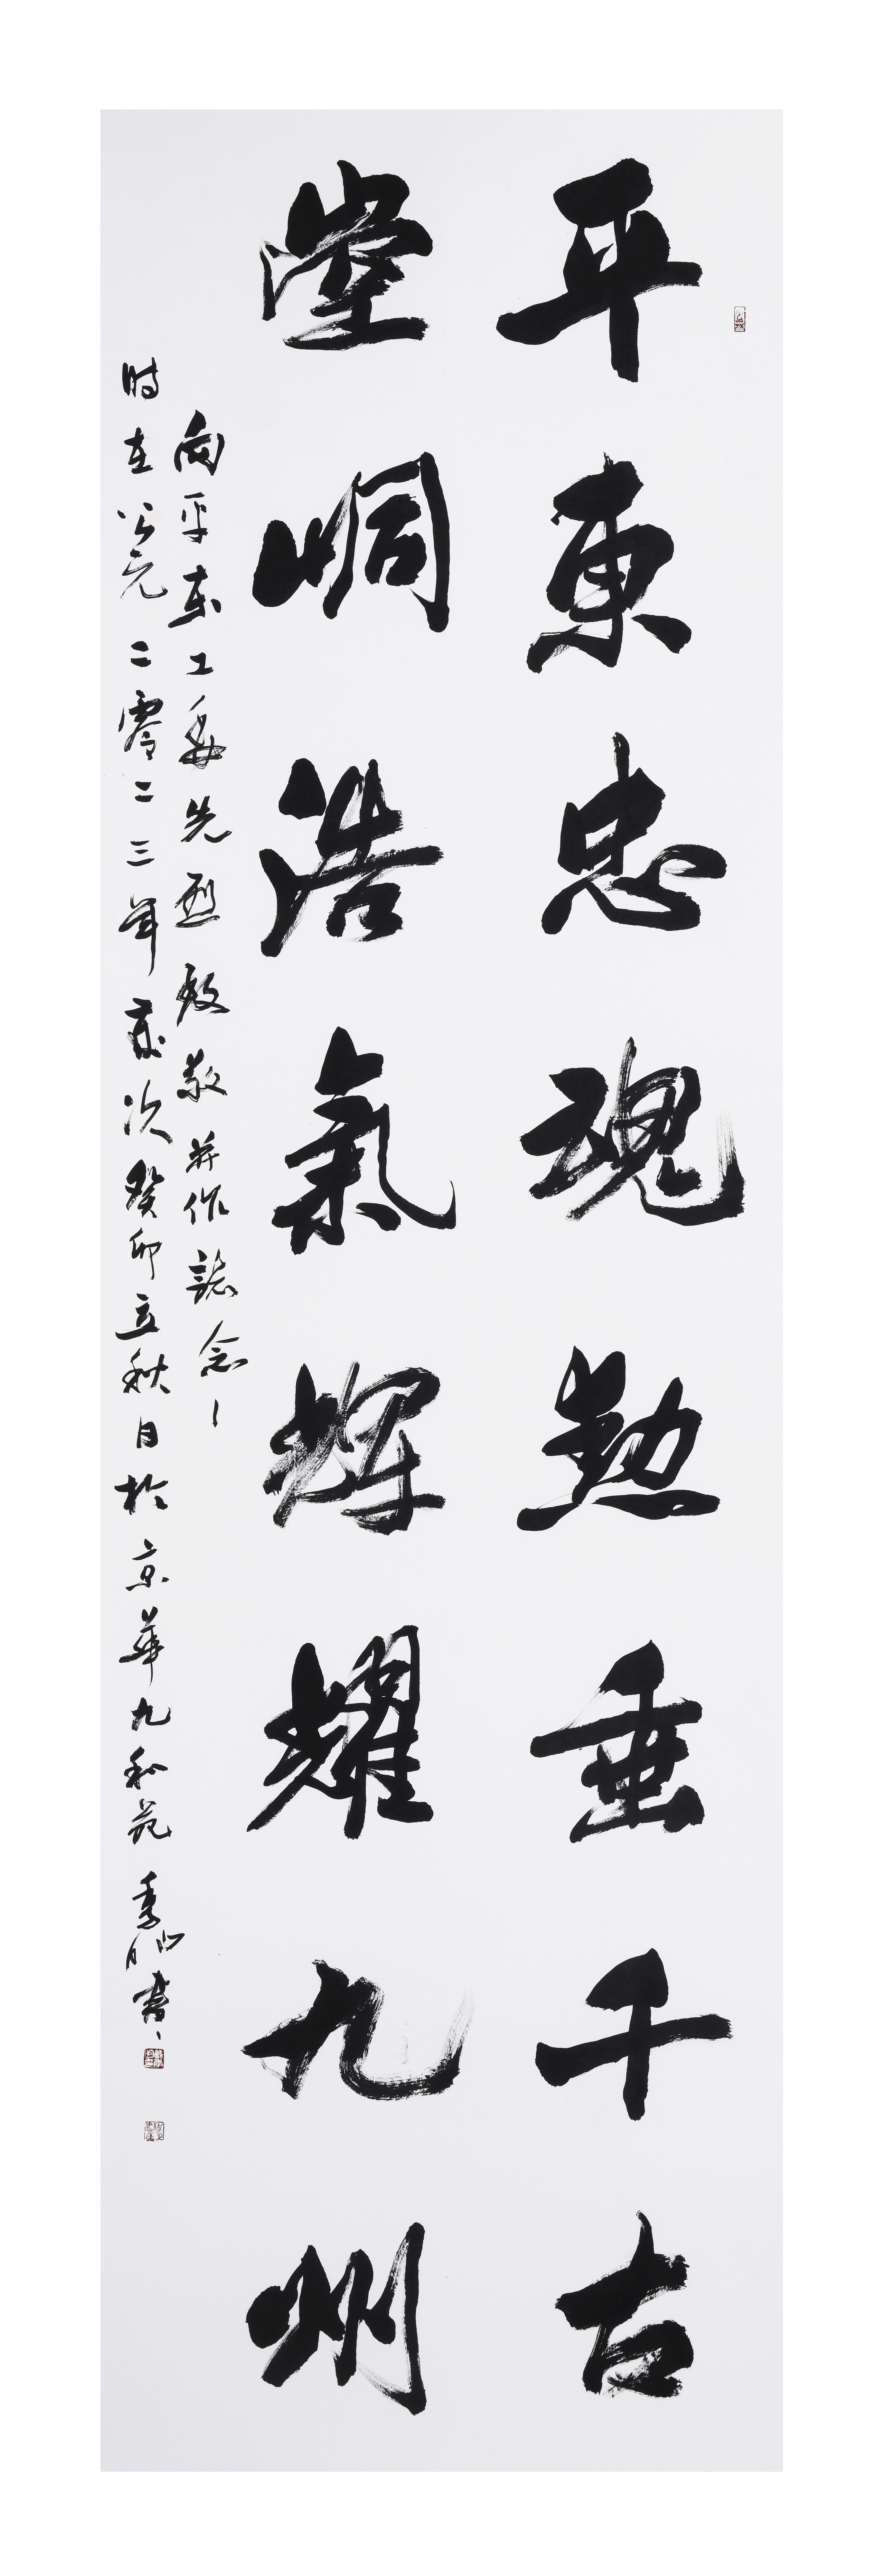 平東忠魂勲垂千古
崆峒浩氣輝耀九州
向平东工委先烈致敬并作誌念
时在公元二零二三年歲次癸卯立秋日於京華九和苑